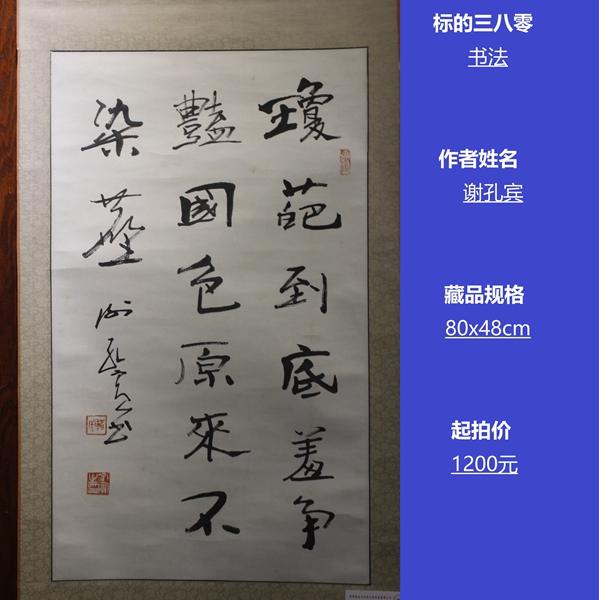 瓊葩到底羞争
豔國色原來不
染塵
谢孔賓书
标的三八零
书法
作者姓名
谢孔宾
藏品规格
80x48cm
起拍价
1200元